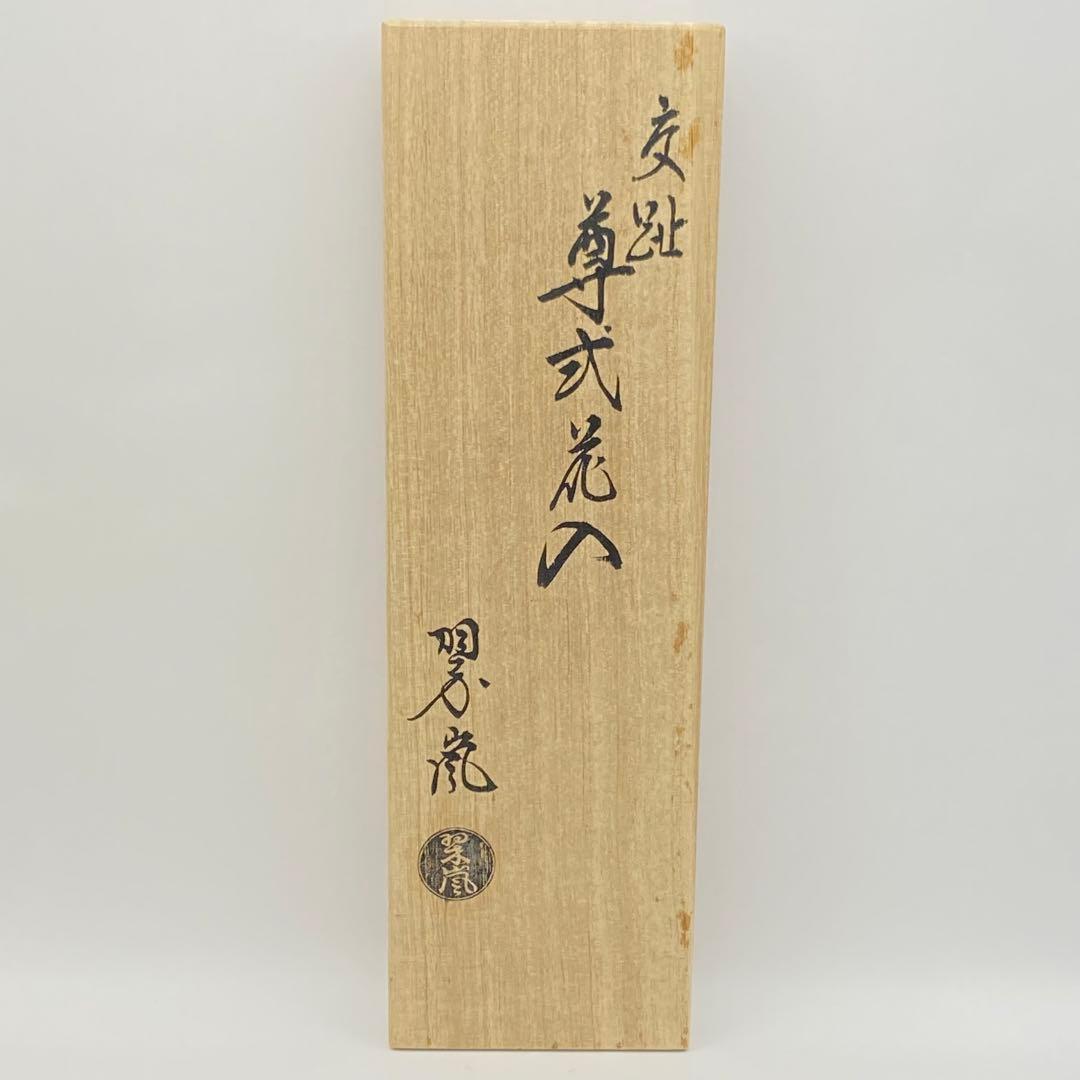 交趾
尊式花入
翠嵐
翠嵐